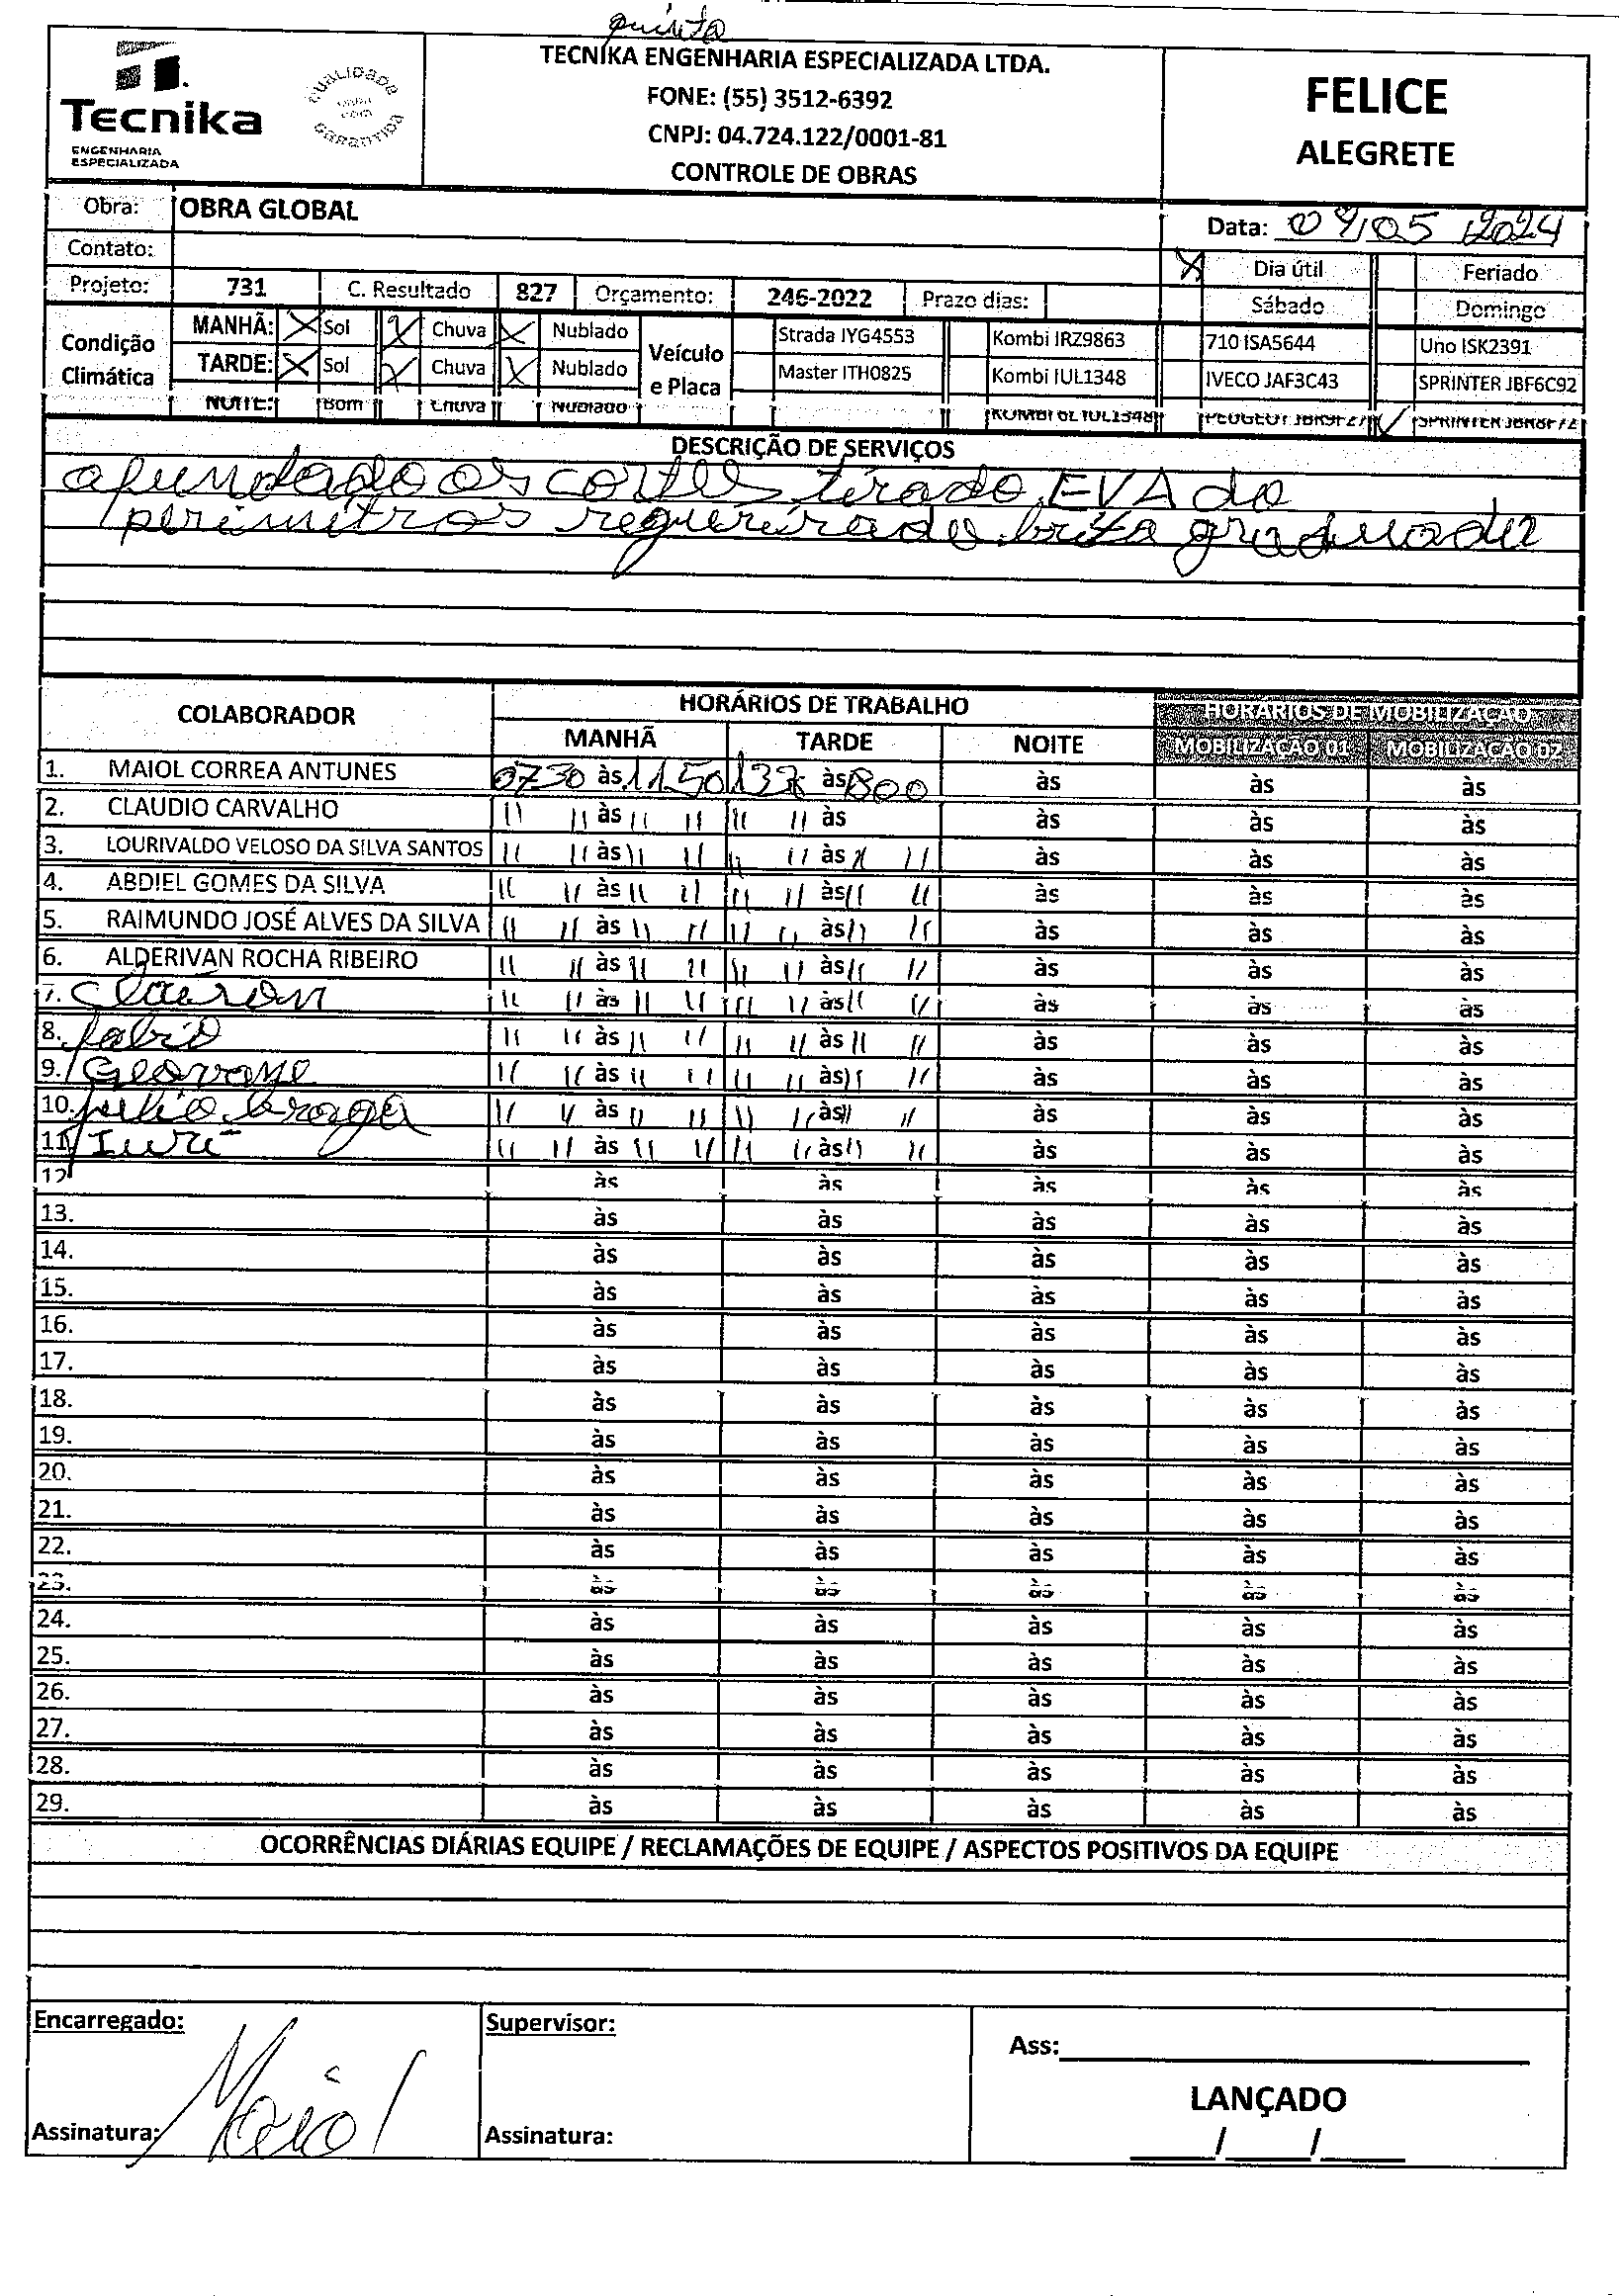 quinta
Tecnika
ENGENHARIA
ESPECIALIZADA
QUALIDADE
COM
GARANTIDA
TECNIKA ENGENHARIA ESPECIALIZADA LTDA.
FONE: (55) 3512-6392
CNPJ: 04.724.122/0001-81
CONTROLE DE OBRAS
FELICE
ALEGRETE
Obra: OBRA GLOBAL
Data: 09/05/2024
Contato:
X Dia útil Feriado
Projeto: 731 C. Resultado 827 Orçamento: 246-2022 Prazo dias:
Sábado Domingo
Condição Climática
MANHÃ: X Sol X Chuva X Nublado
TARDE: X Sol X Chuva X Nublado
NOITE: Bom Chuva Nublado
Veículo e Placa
Strada IYG4553 Kombi IRZ9863 710 ISA5644 Uno ISK2391
Master ITH0825 Kombi IUL1348 IVECO JAF3C43 SPRINTER JBF6C92
KOMBI 6L IUL1348 PEUGEOT JBK9F27 SPRINTER JBK8F72
DESCRIÇÃO DE SERVIÇOS
afundado os cortes tirado EVA do
perimitros regueirado brita graduada
COLABORADOR HORÁRIOS DE TRABALHO HORÁRIOS DE MOBILIZAÇÃO
MANHÃ TARDE NOITE MOBILIZAÇÃO 01 MOBILIZAÇÃO 02
1. MAIOL CORREA ANTUNES 0730 às 1150 133 às 800 às às às
2. CLAUDIO CARVALHO " " às " " " " às às às às
3. LOURIVALDO VELOSO DA SILVA SANTOS " " às " " " " às " " às às às
4. ABDIEL GOMES DA SILVA " " às " " " " às " " às às às
5. RAIMUNDO JOSÉ ALVES DA SILVA " " às " " " " às " " às às às
6. ALDERIVAN ROCHA RIBEIRO " " às " " " " às " " às às às
7. Clairon " " às " " " " às " " às às às
8. fabio " " às " " " " às " " às às às
9. Geovane " " às " " " " às " " às às às
10. julio braga " " às " " " " às " " às às às
11. Iuri " " às " " " " às " " às às às
12 às às às às às
13. às às às às às
14. às às às às às
15. às às às às às
16. às às às às às
17. às às às às às
18. às às às às às
19. às às às às às
20. às às às às às
2121. às às às às às
2222. às às às às às
2323. às às às às às
2424. às às às às às
25.. às às às às às
26. às às às às às
27. às às às às às
28. às às às às às
2929às às às às às
OCORRÊNCIAS DIÁRIAS EQUIPE / RECLAMAÇÕES DE EQUIPE / ASPECTOS POSITIVOS DA EQUIPE
Encarregado: Supervisor:
Ass:
LANÇADO
Assinatura: Maiol Assinatura:
/ /